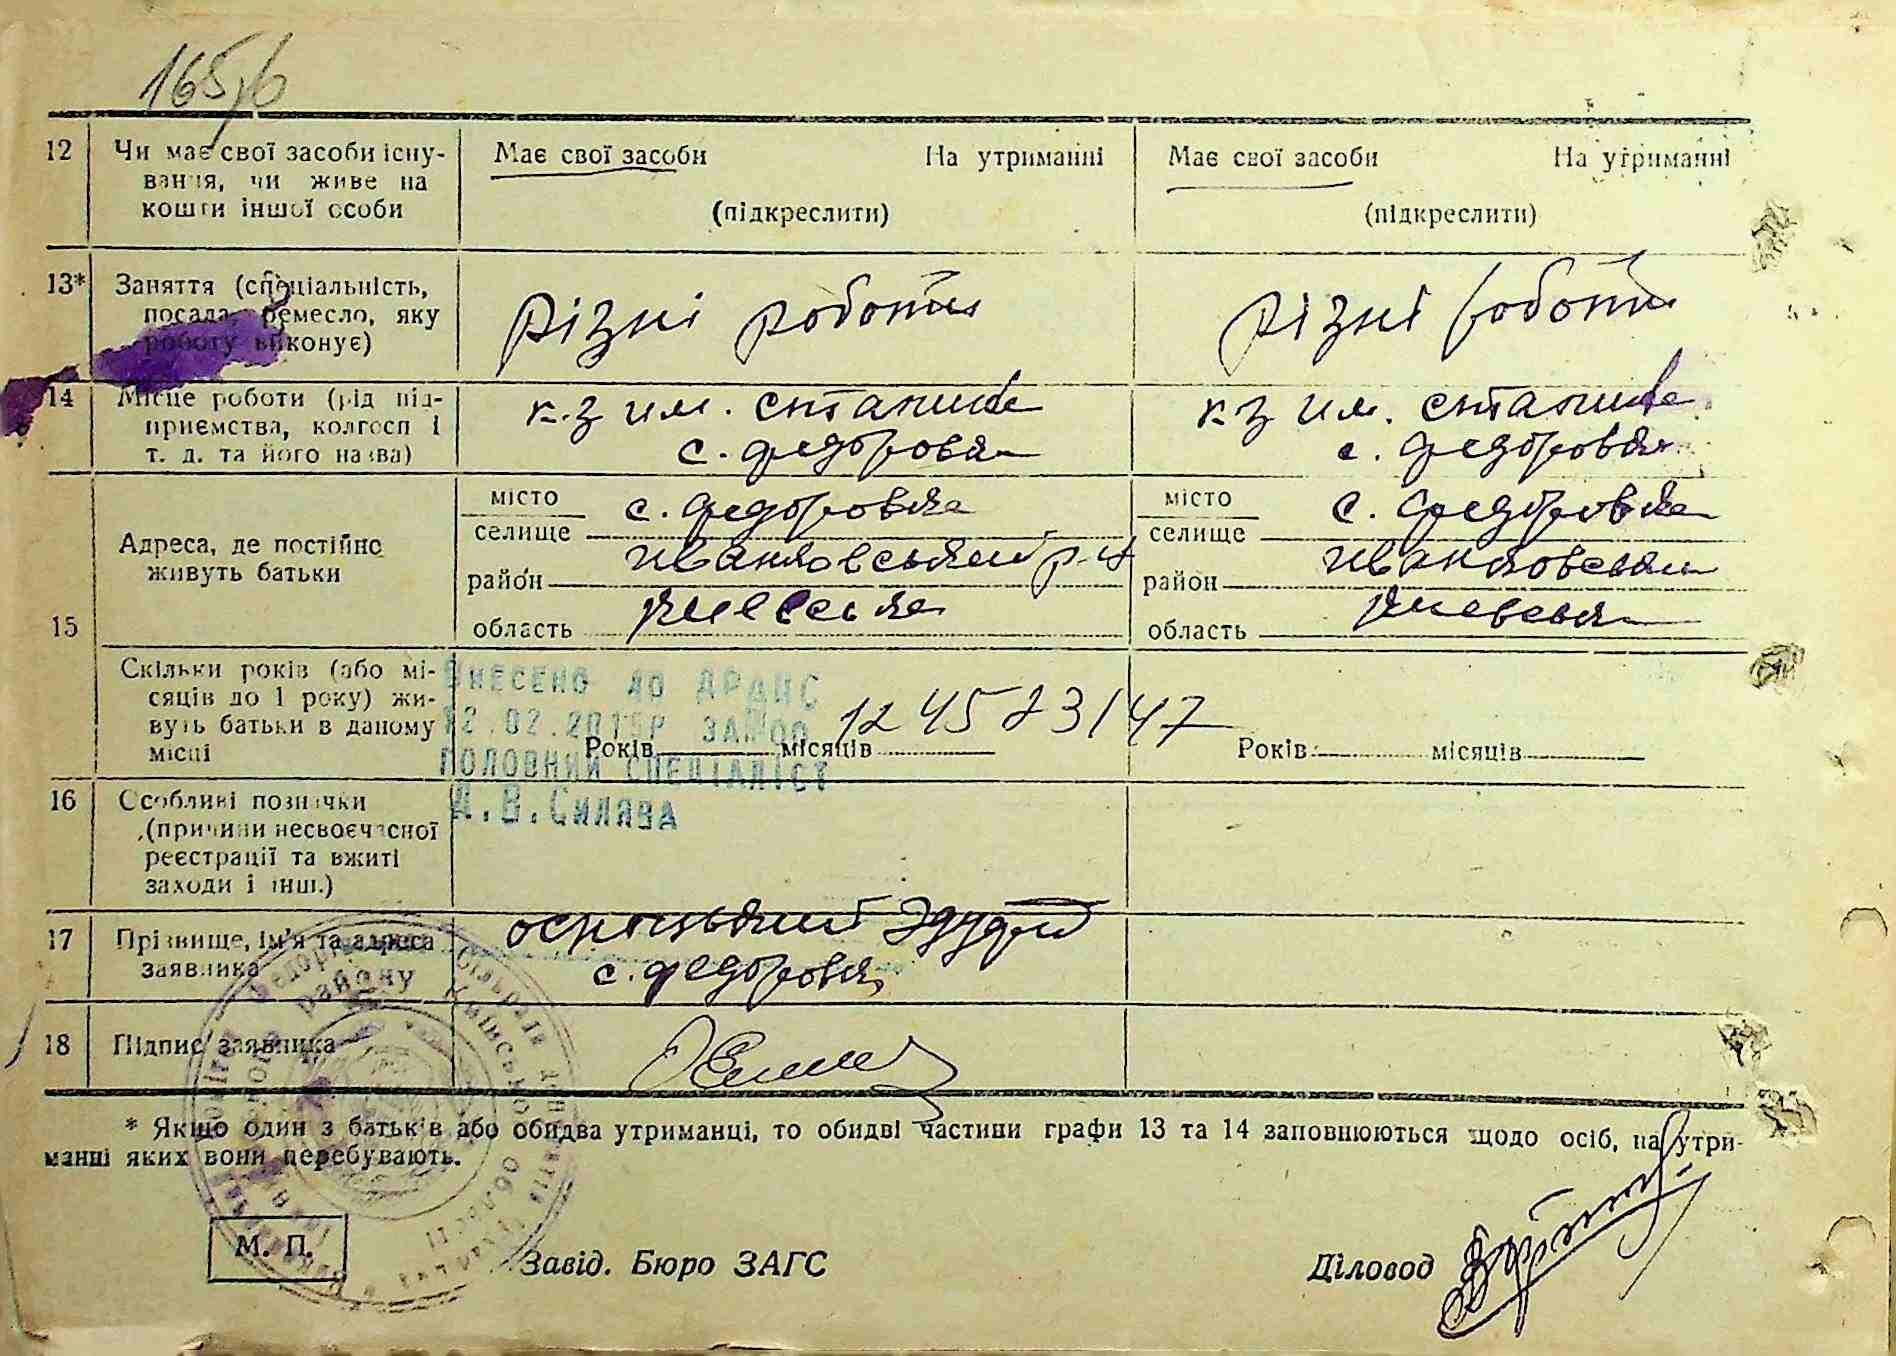 165,б
12 Чи має свої засоби існу- Має свої засоби На утриманні Має свої засоби На утриманні
вання, чи живе на
кошти іншої особи (підкреслити) (підкреслити)
13* Заняття (спеціальність,
посада, ремесло, яку різні роботи різні роботи
роботу виконує)
14 Місце роботи (рід під- к-з им. сталина к-з им. сталина
приємства, колгосп і с. федоровка с. федоровка
т. д. та його назва)
15 Адреса, де постійно живуть батьки
місто с. федоровка місто с. федоровка
селище селище
район иванковський р-н район иванковський
область киевська область киевська
Скільки років (або мі-
сяців до 1 року) жи-
вуть батьки в даному
місці Років місяців Років місяців
Внесено до ДРАЦС
12.02.2015р за №00
1245 83147
Головний спеціаліст
Д.В.Силява
16 Особливі позначки
(причини несвоєчасної
реєстрації та вжиті
заходи і інш.)
17 Прізвище, ім'я та адреса Эдуард
заявника с. федоровка
18 Підпис заявника
* Якщо один з батьків або обидва утриманці, то обидві частини графи 13 та 14 заповнюються щодо осіб, на утри-
манні яких вони перебувають.
М. П. Завід. Бюро ЗАГС Діловод
району
області